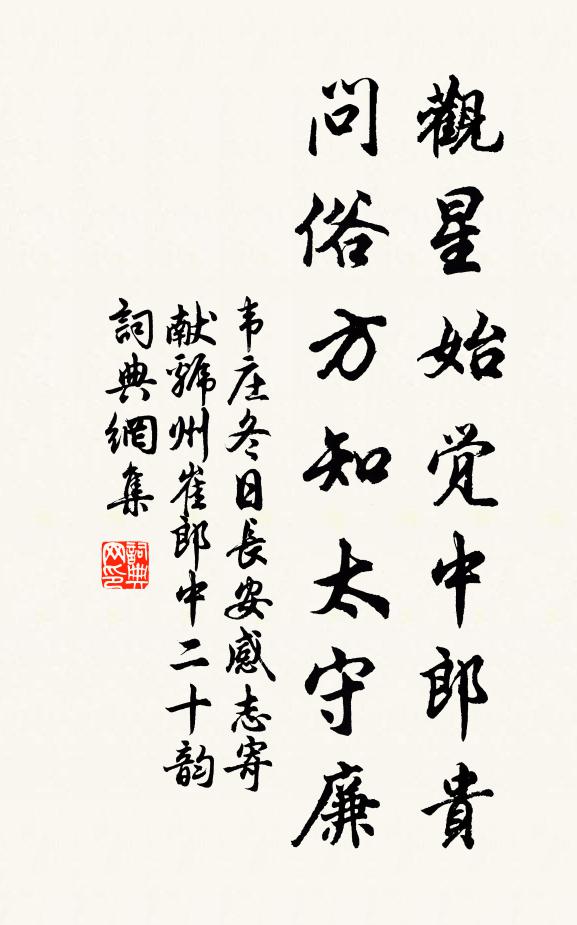 觀星始觉中郎貴
問俗方知太守廉
韦庄冬日長安感志寄
献虢州崔郎中二十韵
詞典網集
詞典网印